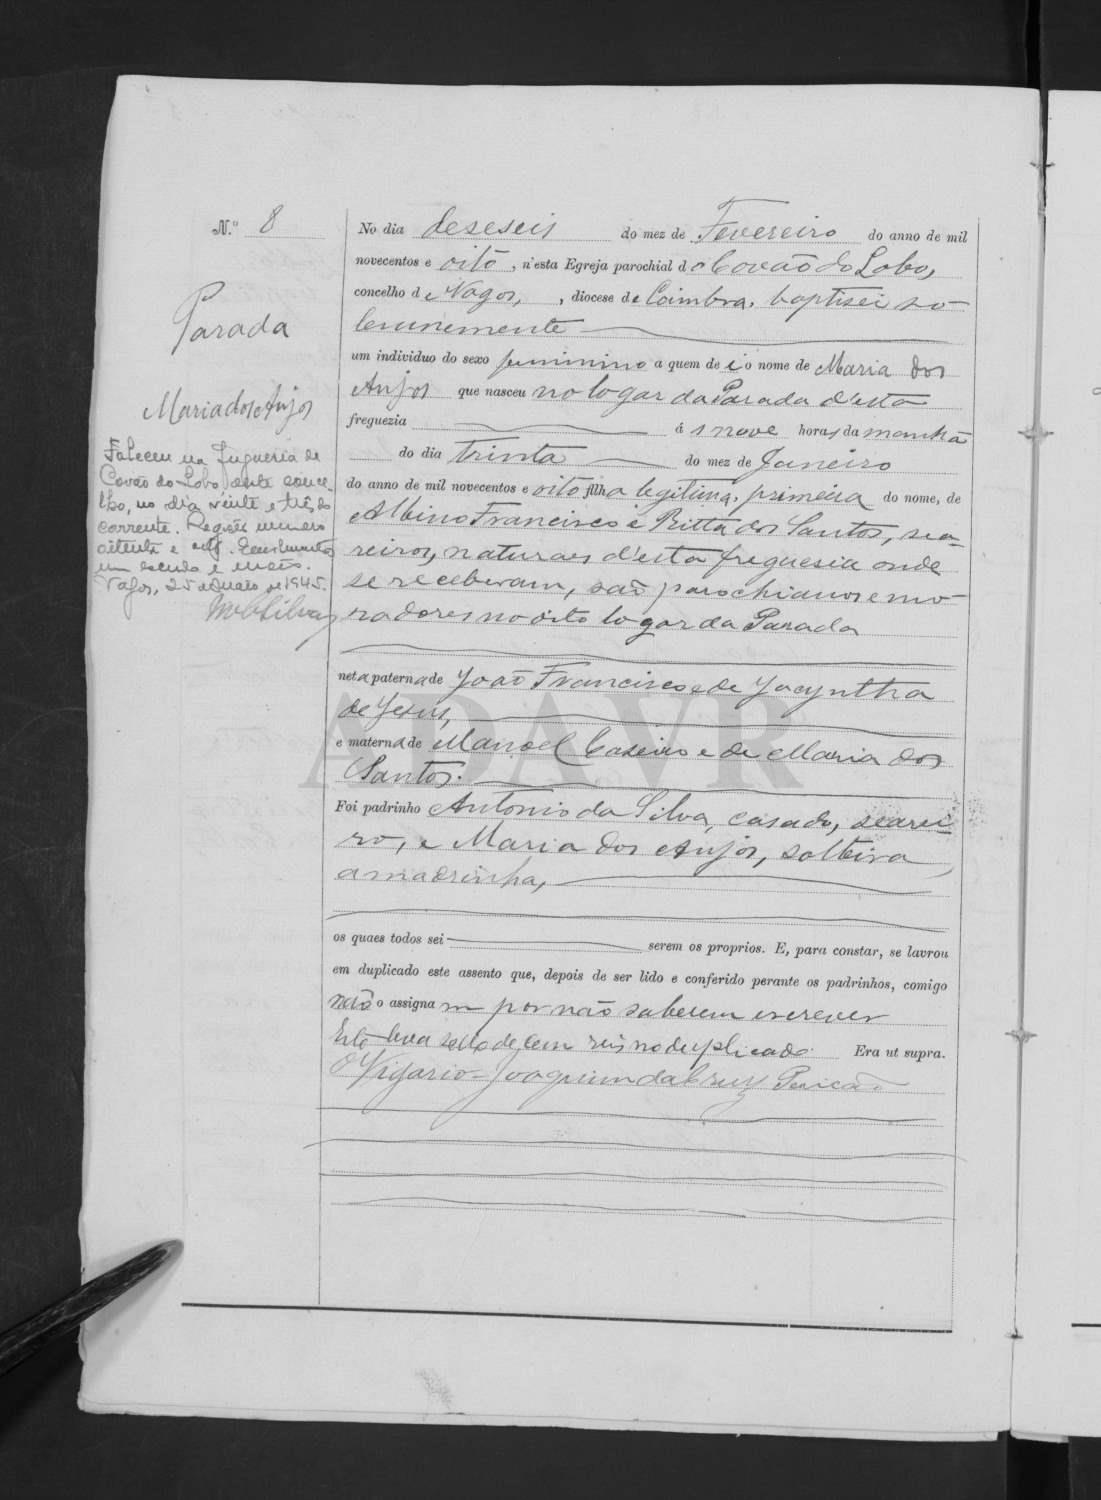 N.º 8
Parada
Maria dos Anjos
Faleceu na freguesia de
Covão do Lobo, deste conce-
lho, no dia vinte e três do
corrente. Registo numero
oitenta e . Emolumentos
um escudo e meio.
Vagos, 25 de Maio de 1945.
No dia deseseis do mez de Fevereiro do anno de mil
novecentos e oito, n'esta Egreja parochial do Covão do Lobo,
concelho de Vagos, , diocese de Coimbra, baptisei so-
lemnemente
um individuo do sexo feminino a quem dei o nome de Maria dos
Anjos que nasceu no logar da Parada d'esta
freguezia ás nove horas da manhã
do dia trinta do mez de Janeiro
do anno de mil novecentos e oito filha legitima, primeira do nome, de
Albino Francisco e Ritta dos Santos, sea-
reiros, naturaes d'esta freguesia onde
se receberam, são parochianos e mo-
radores no dito logar da Parada
neta paterna de João Francisco e de Jacyntha
de Jesus,
e materna de Manoel Caseiro e de Maria dos
Santos.
Foi padrinho Antonio da Silva, casado, searei-
ro, e Maria dos Anjos, solteira
a madrinha,
os quaes todos sei serem os proprios. E, para constar, se lavrou
em duplicado este assento que, depois de ser lido e conferido perante os padrinhos, comigo
não o assignam por não saberem escrever
Este leva sello de cem reis no duplicado. Era ut supra.
O Vigario - Joaquim da Cruz
ADAVR